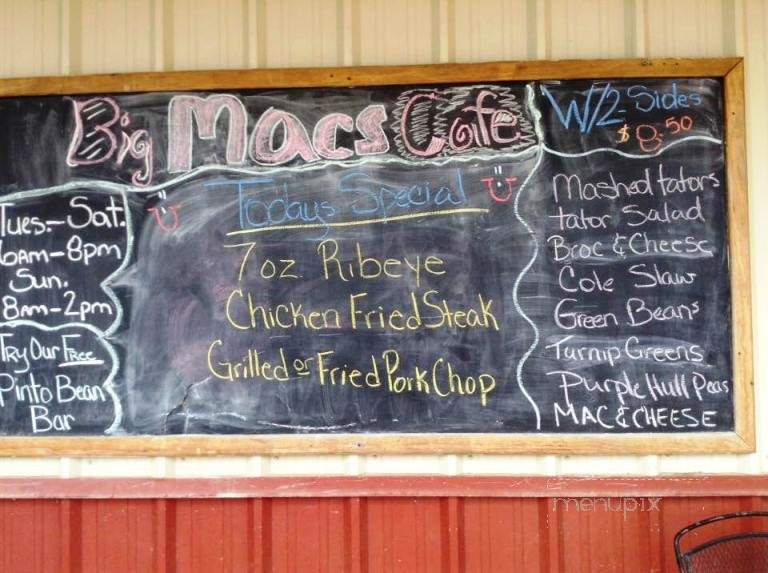 Big Macs Cafe
Tues.-Sat.
6AM-8pm
Sun.
8AM-2pm
Try Our Free
Pinto Bean
Bar
Todays Special
7 oz. Ribeye
Chicken Fried Steak
Grilled or Fried Pork Chop
W/2 Sides
$8.50
Mashed tators
tator Salad
Broc & Cheese
Cole Slaw
Green Beans
Turnip Greens
Purple Hull Peas
MAC & CHEESE
menupix